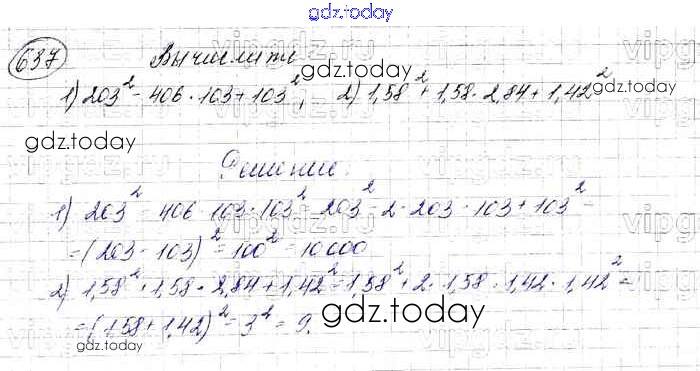 gdz.today
637 Вычислить
1) 203² - 406 · 103 + 103²; 2) 1,58² + 1,58 · 2,84 + 1,42²
gdz.today
gdz.today
Решение.
1) 203² - 406 · 103 + 103² = 203² - 2 · 203 · 103 + 103² =
= (203 - 103)² = 100² = 10000
2) 1,58² + 1,58 · 2,84 + 1,42² = 1,58² + 2 · 1,58 · 1,42 + 1,42² =
= (1,58 + 1,42)² = 3² = 9.
gdz.today
gdz.today